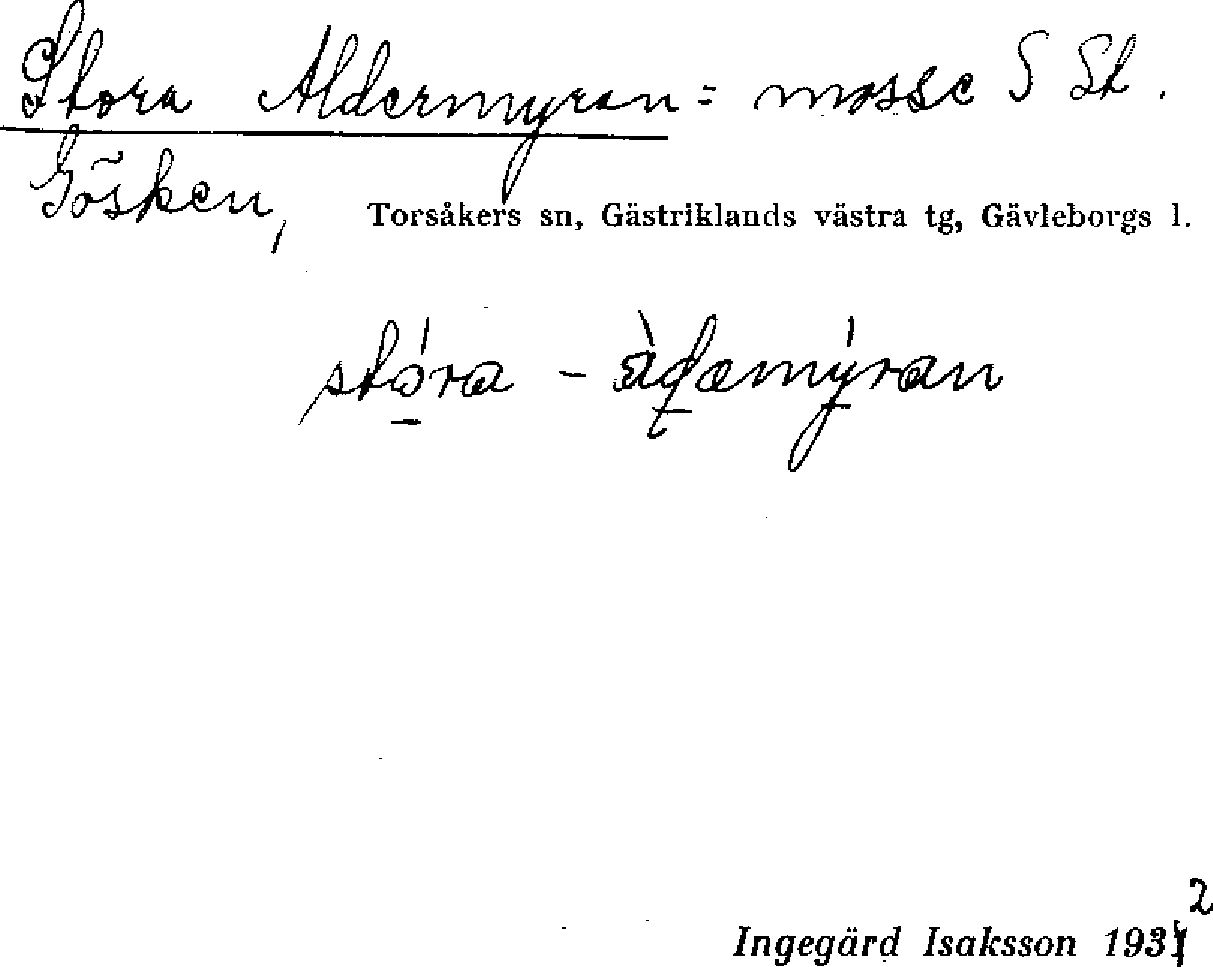 Stora Aldermyran = mosse S St.
Gösken, Torsåkers sn, Gästriklands västra tg, Gävleborgs l.
stóra -
Ingegärd Isaksson 1932